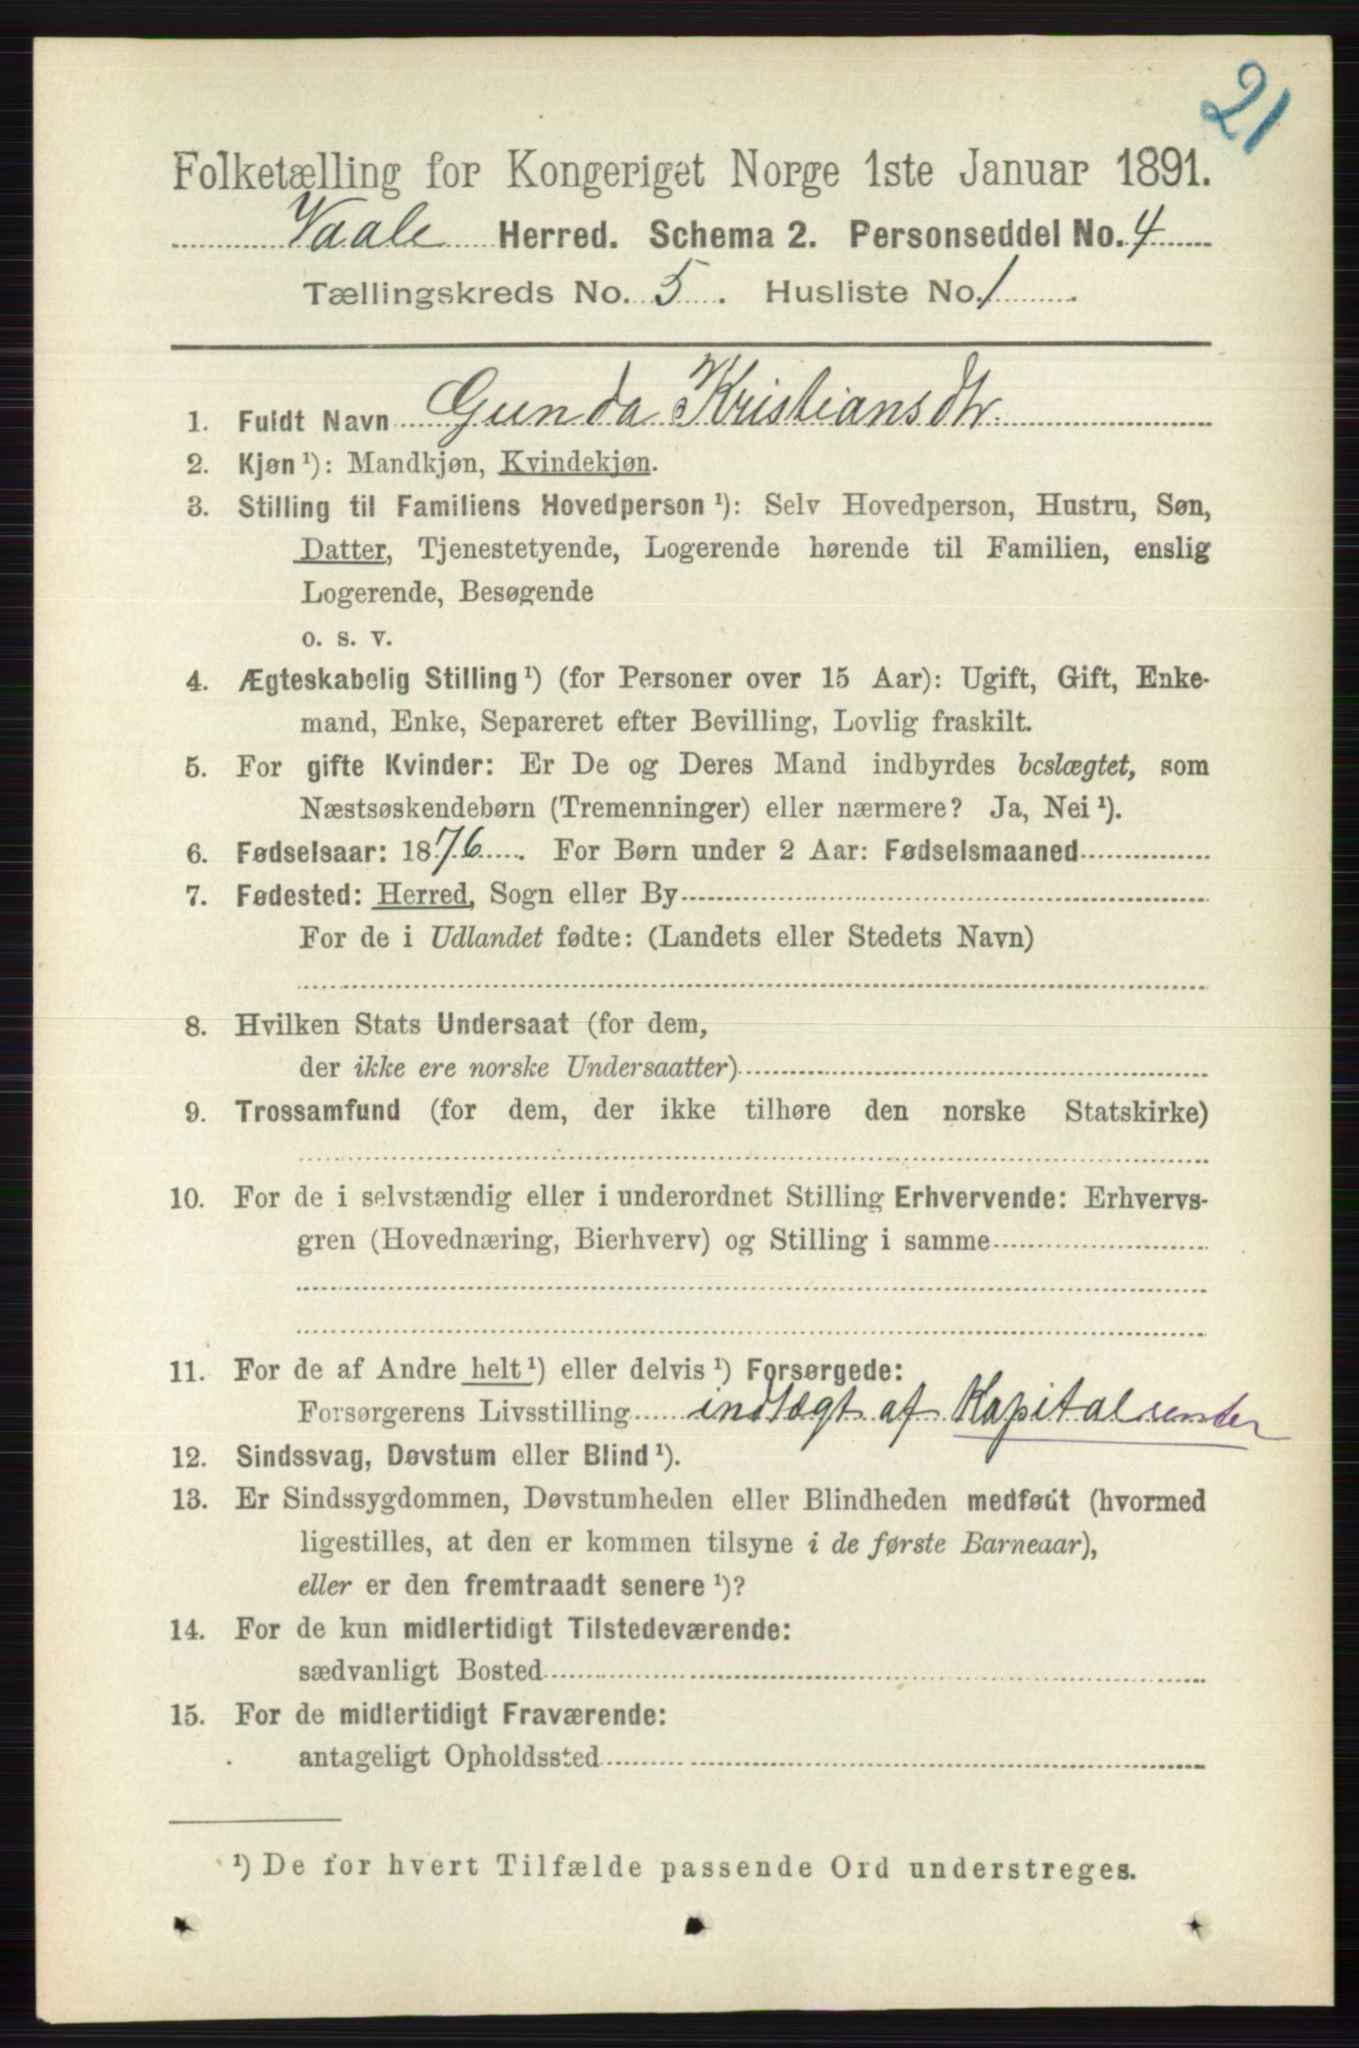 21
Folketælling for Kongeriget Norge 1ste Januar 1891.
Vaale Herred. Schema 2. Personseddel No. 4
Tællingskreds No. 5. Husliste No. 1.
1. Fuldt Navn Gunda Kristiansdtr.
2. Kjøn ¹): Mandkjøn, Kvindekjøn.
3. Stilling til Familiens Hovedperson ¹): Selv Hovedperson, Hustru, Søn,
Datter, Tjenestetyende, Logerende hørende til Familien, enslig
Logerende, Besøgende
o. s. v.
4. Ægteskabelig Stilling ¹) (for Personer over 15 Aar): Ugift, Gift, Enke-
mand, Enke, Separeret efter Bevilling, Lovlig fraskilt.
5. For gifte Kvinder: Er De og Deres Mand indbyrdes beslægtet, som
Næstsøskendebørn (Tremenninger) eller nærmere? Ja, Nei ¹).
6. Fødselsaar: 1876. For Børn under 2 Aar: Fødselsmaaned
7. Fødested: Herred, Sogn eller By
For de i Udlandet fødte: (Landets eller Stedets Navn)
8. Hvilken Stats Undersaat (for dem,
der ikke ere norske Undersaatter)
9. Trossamfund (for dem, der ikke tilhøre den norske Statskirke)
10. For de i selvstændig eller i underordnet Stilling Erhvervende: Erhvervs-
gren (Hovednæring, Bierhverv) og Stilling i samme
11. For de af Andre helt ¹) eller delvis ¹) Forsørgede:
Forsørgerens Livsstilling indtægt af Kapitalrenter
12. Sindssvag, Døvstum eller Blind ¹).
13. Er Sindssygdommen, Døvstumheden eller Blindheden medfødt (hvormed
ligestilles, at den er kommen tilsyne i de første Barneaar),
eller er den fremtraadt senere ¹)?
14. For de kun midlertidigt Tilstedeværende:
sædvanligt Bosted
15. For de midlertidigt Fraværende:
antageligt Opholdssted
¹) De for hvert Tilfælde passende Ord understreges.